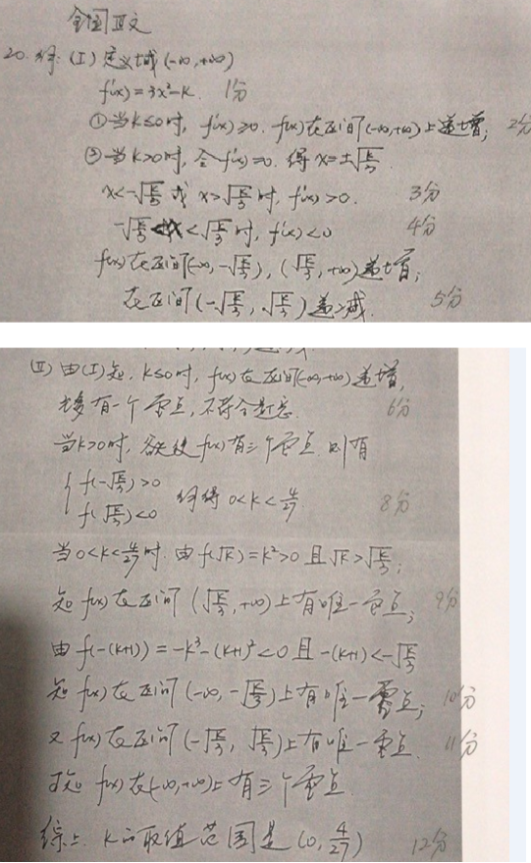 全国Ⅲ文
20. 解: (Ⅰ) 定义域(-∞,+∞)
f'(x)=3x²-k. 1分
①当k≤0时, f'(x)≥0. f(x)在区间(-∞,+∞)上递增; 2分
②当k>0时, 令f'(x)=0. 得x=±√(k/3)
x<-√(k/3) 或 x>√(k/3) 时, f'(x)>0. 3分
-√(k/3)<x<√(k/3) 时, f'(x)<0 4分
f(x)在区间(-∞,-√(k/3)), (√(k/3),+∞)递增;
在区间(-√(k/3), √(k/3))递减. 5分
(Ⅱ) 由(Ⅰ)知, k≤0时, f(x)在区间(-∞,+∞)递增,
有一个零点, 不符合题意. 6分
当k>0时, 使f(x)有三个零点. 则有
{ f(-√(k/3))>0
f(√(k/3))<0 解得 0<k<4/27 8分
当0<k<4/27时. 由f(√k)=k²>0 且 √k>√(k/3);
知f(x)在区间(√(k/3),+∞)上有唯一零点; 9分
由f(-(k+1))=-k³-(k+1)²<0 且 -(k+1)<-√(k/3)
知f(x)在区间(-∞,-√(k/3))上有唯一零点; 10分
又f(x)在区间(-√(k/3), √(k/3))上有唯一零点. 11分
故知f(x)在(-∞,+∞)上有三个零点.
综上. k的取值范围是(0, 4/27) 12分